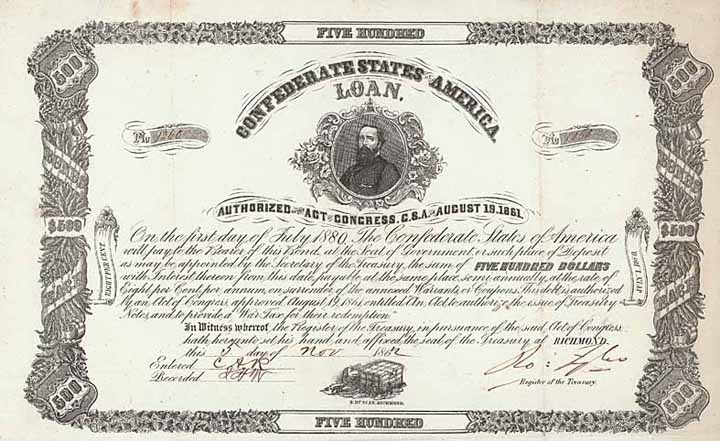 FIVE HUNDRED
500
500
CONFEDERATE STATES OF AMERICA
LOAN,
No
No
AUTHORIZED BY ACT OF CONGRESS, C.S.A. OF AUGUST 19, 1861.
$500
$500
EIGHT PER CENT
JULY 1, 1880
On the first day of July 1880, The Confederate States of America
will pay to the Bearer of this Bond, at the seat of Government, or such place of Deposit
as may be appointed by the Secretary of the Treasury, the sum of FIVE HUNDRED DOLLARS
with Interest thereon from this date, payable at the same place, semi annually, at the rate of
Eight per Cent per annum, on surrender of the annexed Warrants or Coupons. This debt is authorized
by an Act of Congress, approved August 19, 1861, entitled "An Act to authorize the issue of Treasury
Notes, and to provide a War Tax for their redemption."
In Witness whereof, the Register of the Treasury, in pursuance of the said Act of Congress,
hath hereunto set his hand and affixed the seal of the Treasury at RICHMOND.
this 3 day of Nov 1862
Entered
Recorded
Ro: Tyler
Register of the Treasury.
B. DUNCAN, RICHMOND.
500
500
FIVE HUNDRED